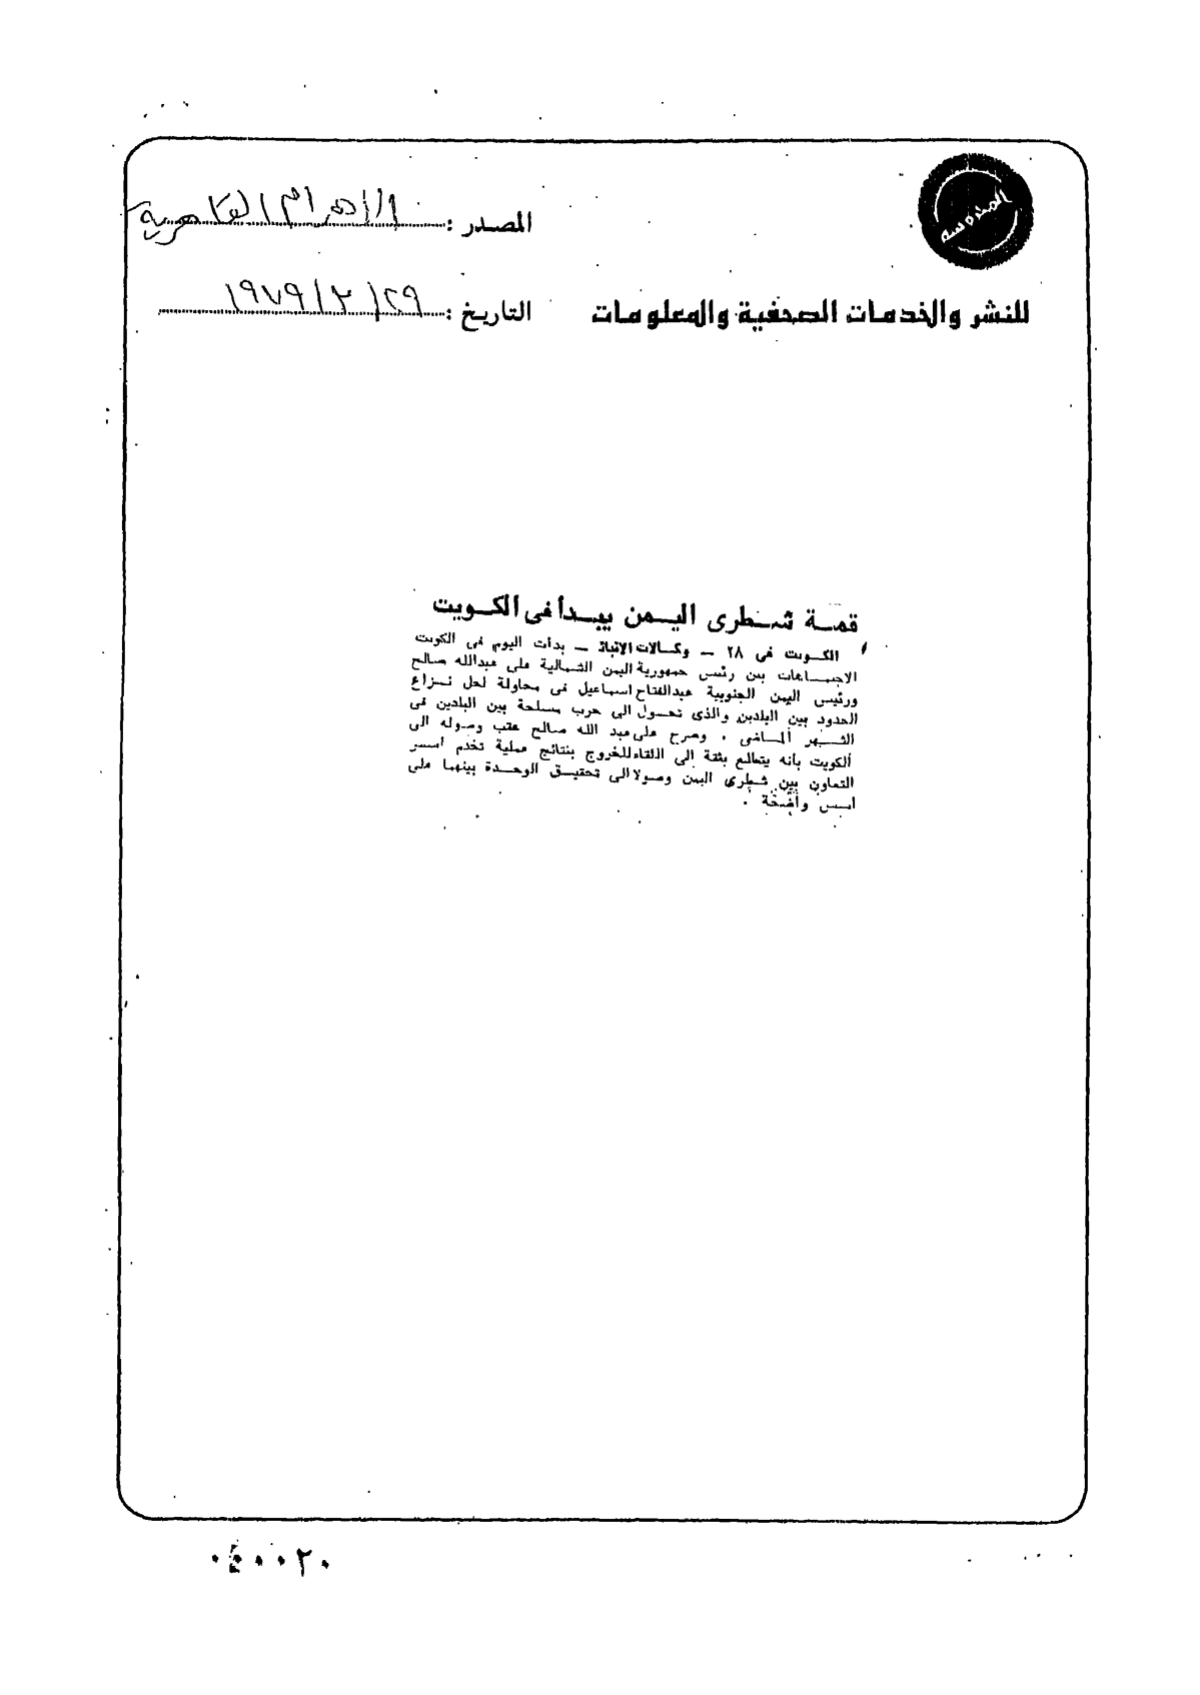 المحروسة
المصدر : الأهرام القاهرية
للنشر والخدمات الصحفية والمعلومات
التاريخ : ٢٩/٣/١٩٧٩
قمـة شـطرى اليـمن يبـدأ فى الكـويت
الكـويت فى ٢٨ – وكـالات الانباء – بدأت اليوم فى الكويت
الاجتمـاعات بين رئيس جمهورية اليمن الشمالية على عبدالله صالح
ورئيس اليمن الجنوبية عبدالفتاح اسماعيل فى محاولة لحل نـزاع
الحدود بين البلدين والذى تحـول الى حرب مسلحة بين البلدين فى
الشـهر المـاضى . وصرح على عبد الله صالح عقب وصوله الى
الكويت بأنه يتطلع بثقة الى اللقاء للخروج بنتائج عملية تخدم اسس
التعاون بين شـطرى اليمن وصولا الى تحقيـق الوحـدة بينهما على
اسس واضحة .
٠٤٠٠٢٠